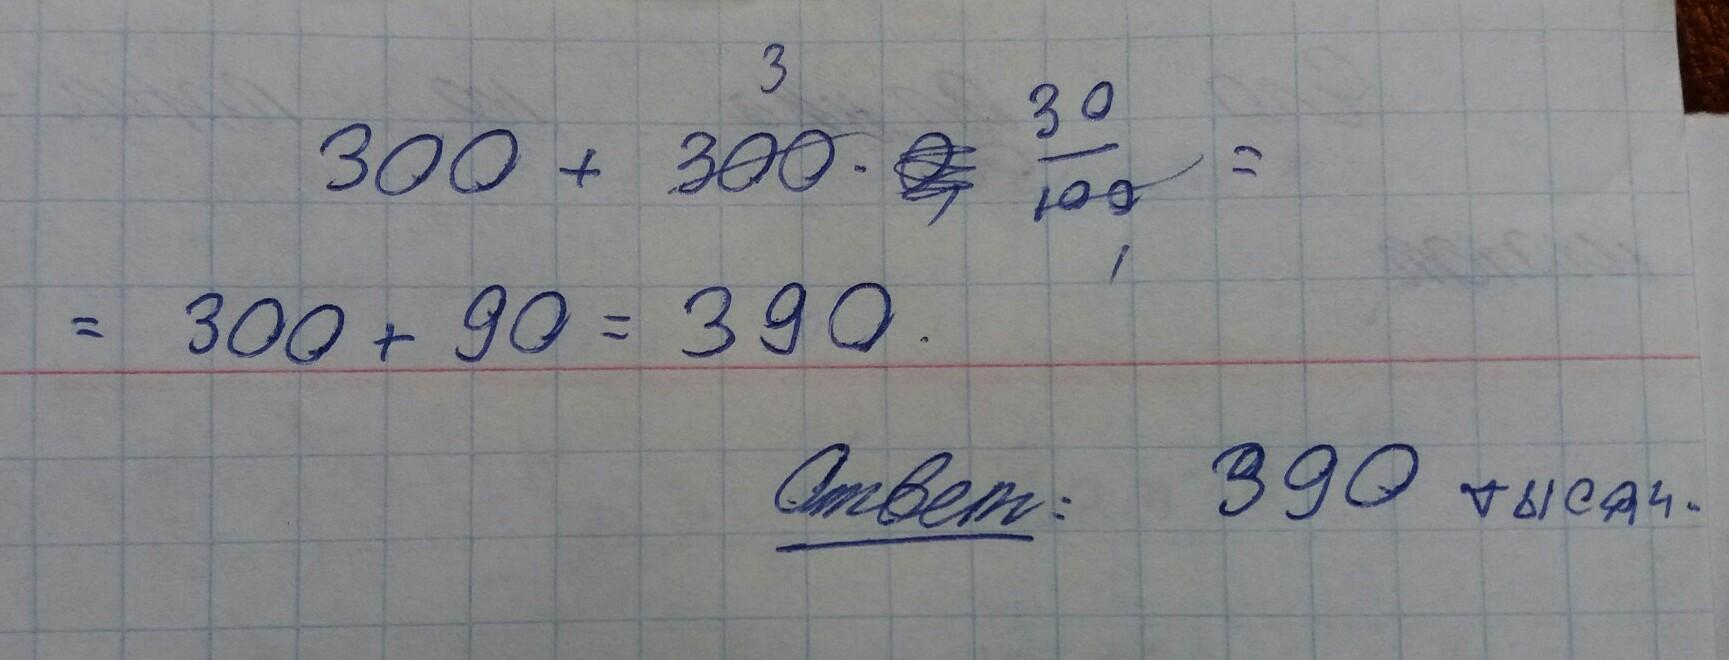 300 + 300 · 30/100 =
= 300 + 90 = 390.
Ответ: 390 тысяч.